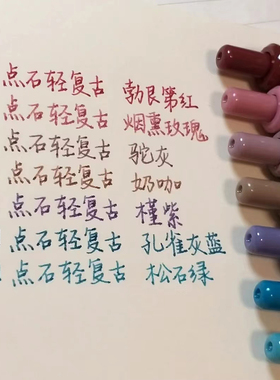 点石轻复古 勃艮第红
点石轻复古 烟熏玫瑰
点石轻复古 驼灰
点石轻复古 奶咖
点石轻复古 槿紫
点石轻复古 孔雀灰蓝
点石轻复古 松石绿